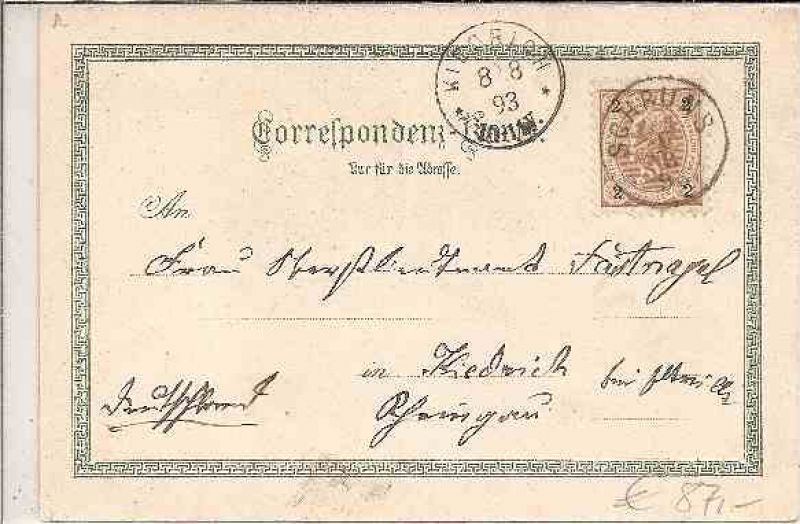 KIEDRICH
8 8
93
SCHRUNS
2 2
2 2
Correspondenz-
Nur für die Adresse.
An
Frau Oberstlieutenant Fastnagel
in Kiedrich bei Eltville
Deutschland
Rheingau
€ 87,-